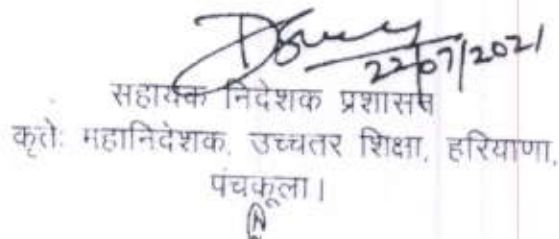 22/07/2021
सहायक निदेशक प्रशासन
कृते: महानिदेशक, उच्चतर शिक्षा, हरियाणा,
पंचकूला।